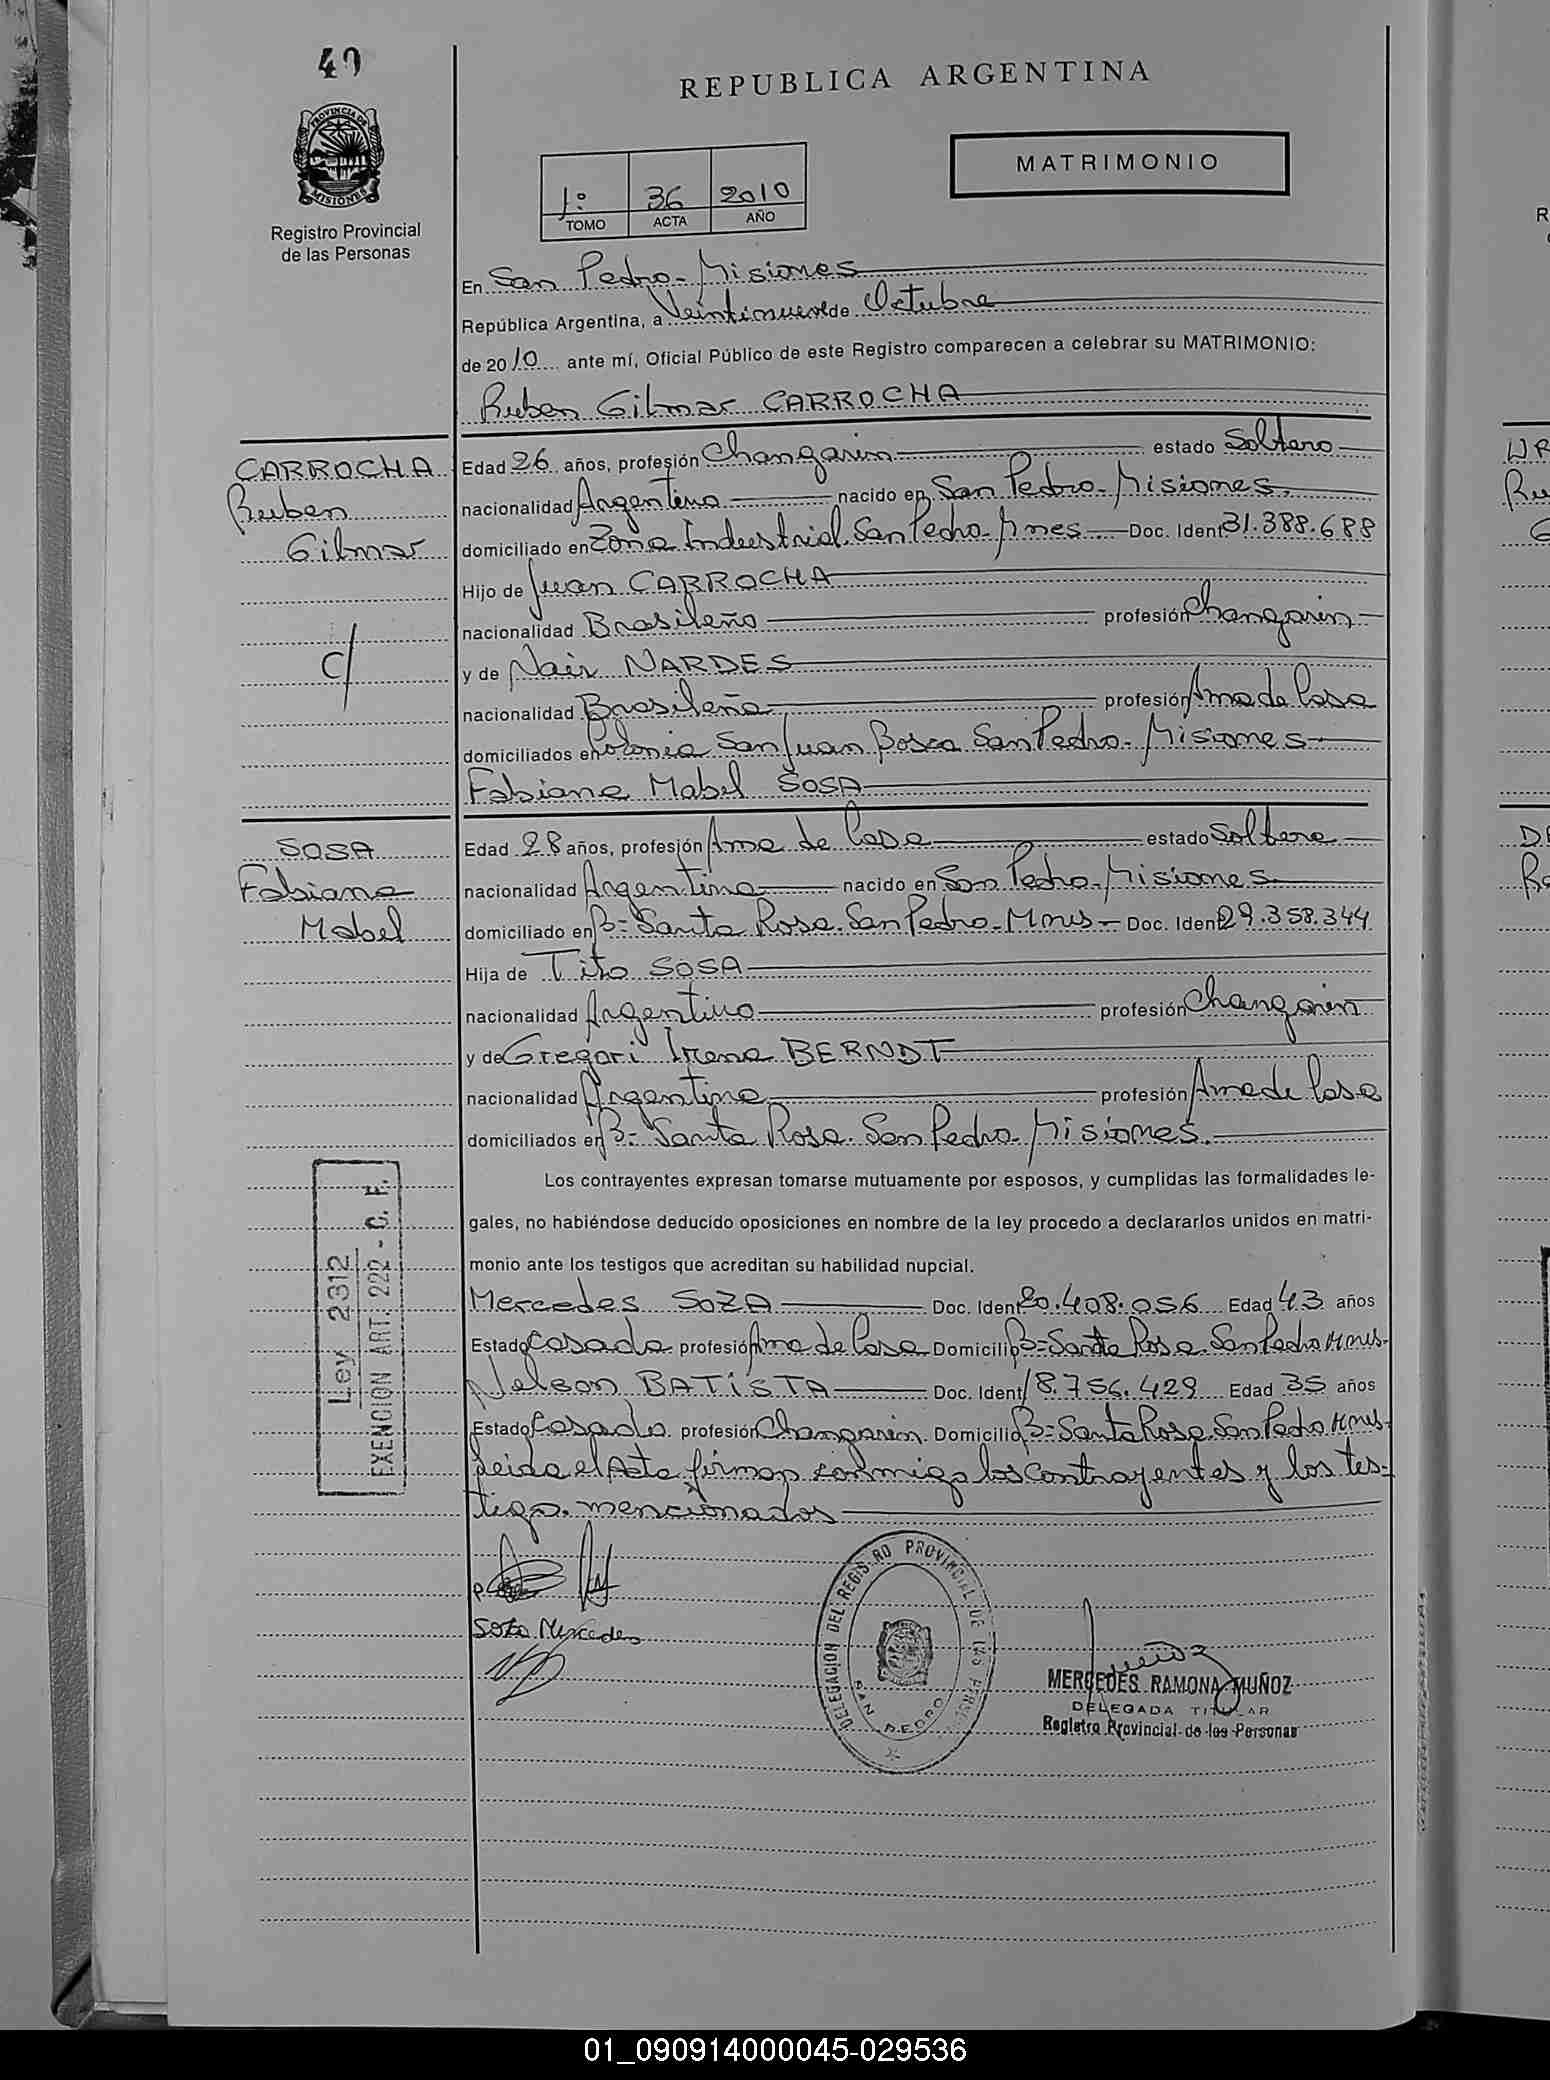 49
REPUBLICA ARGENTINA
MATRIMONIO
PROVINCIA DE
MISIONES
Registro Provincial
de las Personas
1º 36 2010
TOMO ACTA AÑO
En San Pedro - Misiones
República Argentina, a Veintinueve de Octubre
de 2010 ante mí, Oficial Público de este Registro comparecen a celebrar su MATRIMONIO:
Ruben Gilmar CARROCHA
CARROCHA
Ruben
Gilmar
C/
Edad 26 años, profesión Changarin estado Soltero
nacionalidad Argentino nacido en San Pedro - Misiones.
domiciliado en Zona Industrial. San Pedro - Mnes. Doc. Ident 31.388.688
Hijo de Juan CARROCHA
nacionalidad Brasileño profesión Changarin
y de Nair NARDES
nacionalidad Brasileña profesión Ama de Casa
domiciliados en Colonia San Juan Bosco San Pedro - Misiones
Fabiana Mabel SOSA
SOSA
Fabiana
Mabel
Edad 28 años, profesión Ama de Casa estado Soltera
nacionalidad Argentina nacido en San Pedro - Misiones
domiciliado en Bº Santa Rosa. San Pedro - Mnes - Doc. Ident 29.358.344
Hija de Tito SOSA
nacionalidad Argentino profesión Changarin
y de Gregori Irena BERNDT
nacionalidad Argentina profesión Ama de Casa
domiciliados en Bº Santa Rosa. San Pedro - Misiones.
Los contrayentes expresan tomarse mutuamente por esposos, y cumplidas las formalidades le-
gales, no habiéndose deducido oposiciones en nombre de la ley procedo a declararlos unidos en matri-
monio ante los testigos que acreditan su habilidad nupcial.
Mercedes SOZA Doc. Ident 20.408.056 Edad 43 años
Estado Casada profesión Ama de Casa Domicilio Bº Santa Rosa. San Pedro Mnes-
Nelson BATISTA Doc. Ident 18.756.429 Edad 35 años
Estado Casado profesión Changarin. Domicilio Bº Santa Rosa. San Pedro Mnes-
Leida el Acta firman conmigo los contrayentes y los tes-
tigo. mencionados
Ley 2312
EXENCION ART. 222 - C. F.
Soza Mercedes
DELEGACION DEL REGISTRO PROVINCIAL DE LAS PERS
SAN PEDRO
MERCEDES RAMONA MUÑOZ
DELEGADA TITULAR
Registro Provincial de las Personas
01_090914000045-029536